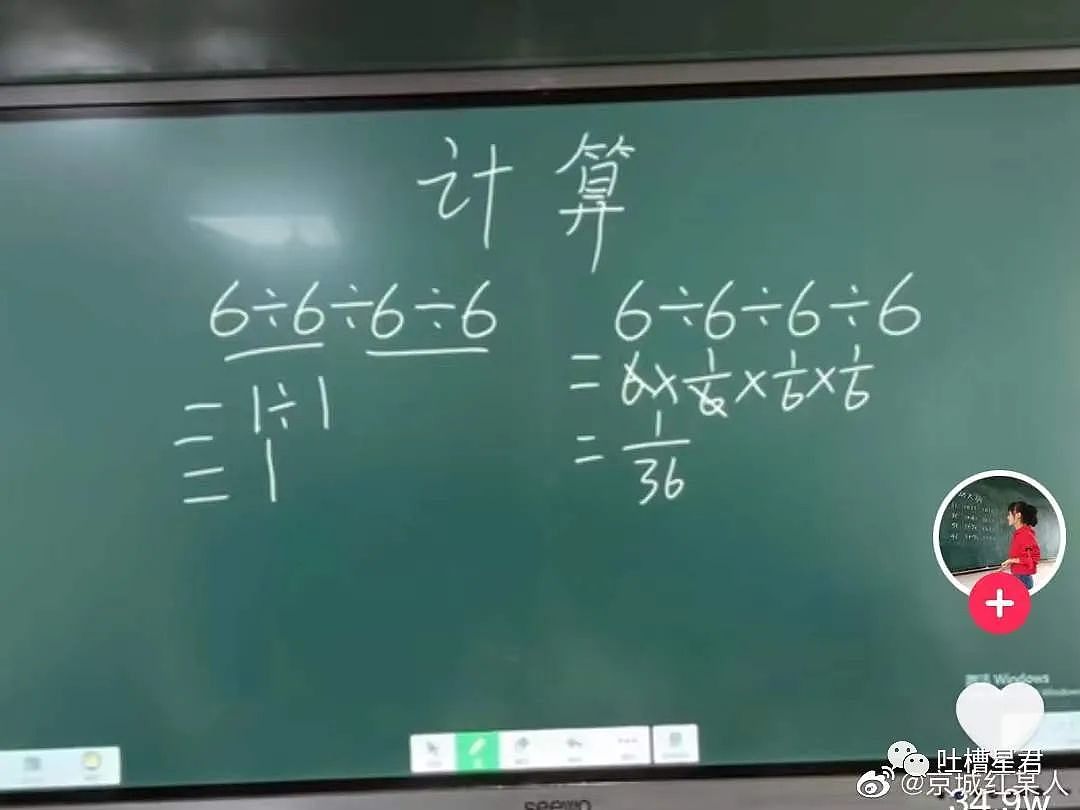 计算
6÷6÷6÷6
=1÷1
=1
6÷6÷6÷6
=6×1/6×1/6×1/6
=1/36
Windows
吐槽星君
@京城红某人
34.9w
seewo